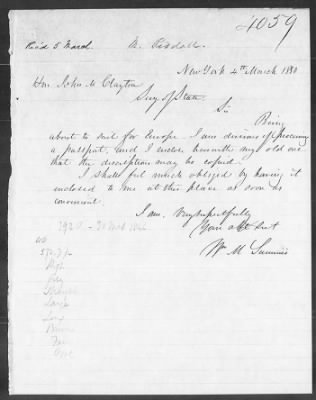 4059
Rec'd 5 March.
New York 4th March 1850
Hon. John M. Clayton
Secy of State
Sir
Being
about to sail for Europe. I am desirous of procuring
a passport, and I enclose herewith my old one
that the description may be copied.
I shall feel much obliged by having it
inclosed to me at this place as soon as
convenient.
I am, Very respectfully
Your obt Svt
Wm M
40
5 ft
High
Grey
Large